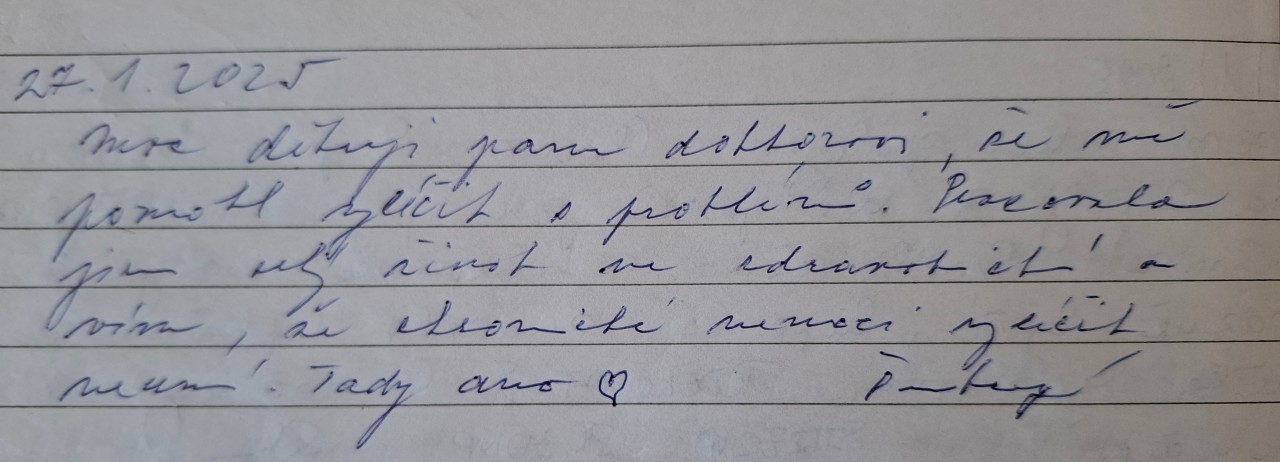 27.1.2025
Moc děkuji panu doktorovi, že mě
pomohl vyléčit s problémů. Pracovala
jsem celý život ve zdravotnictví a
vím, že chronické nemoci vyléčit
neumí. Tady ano ♡